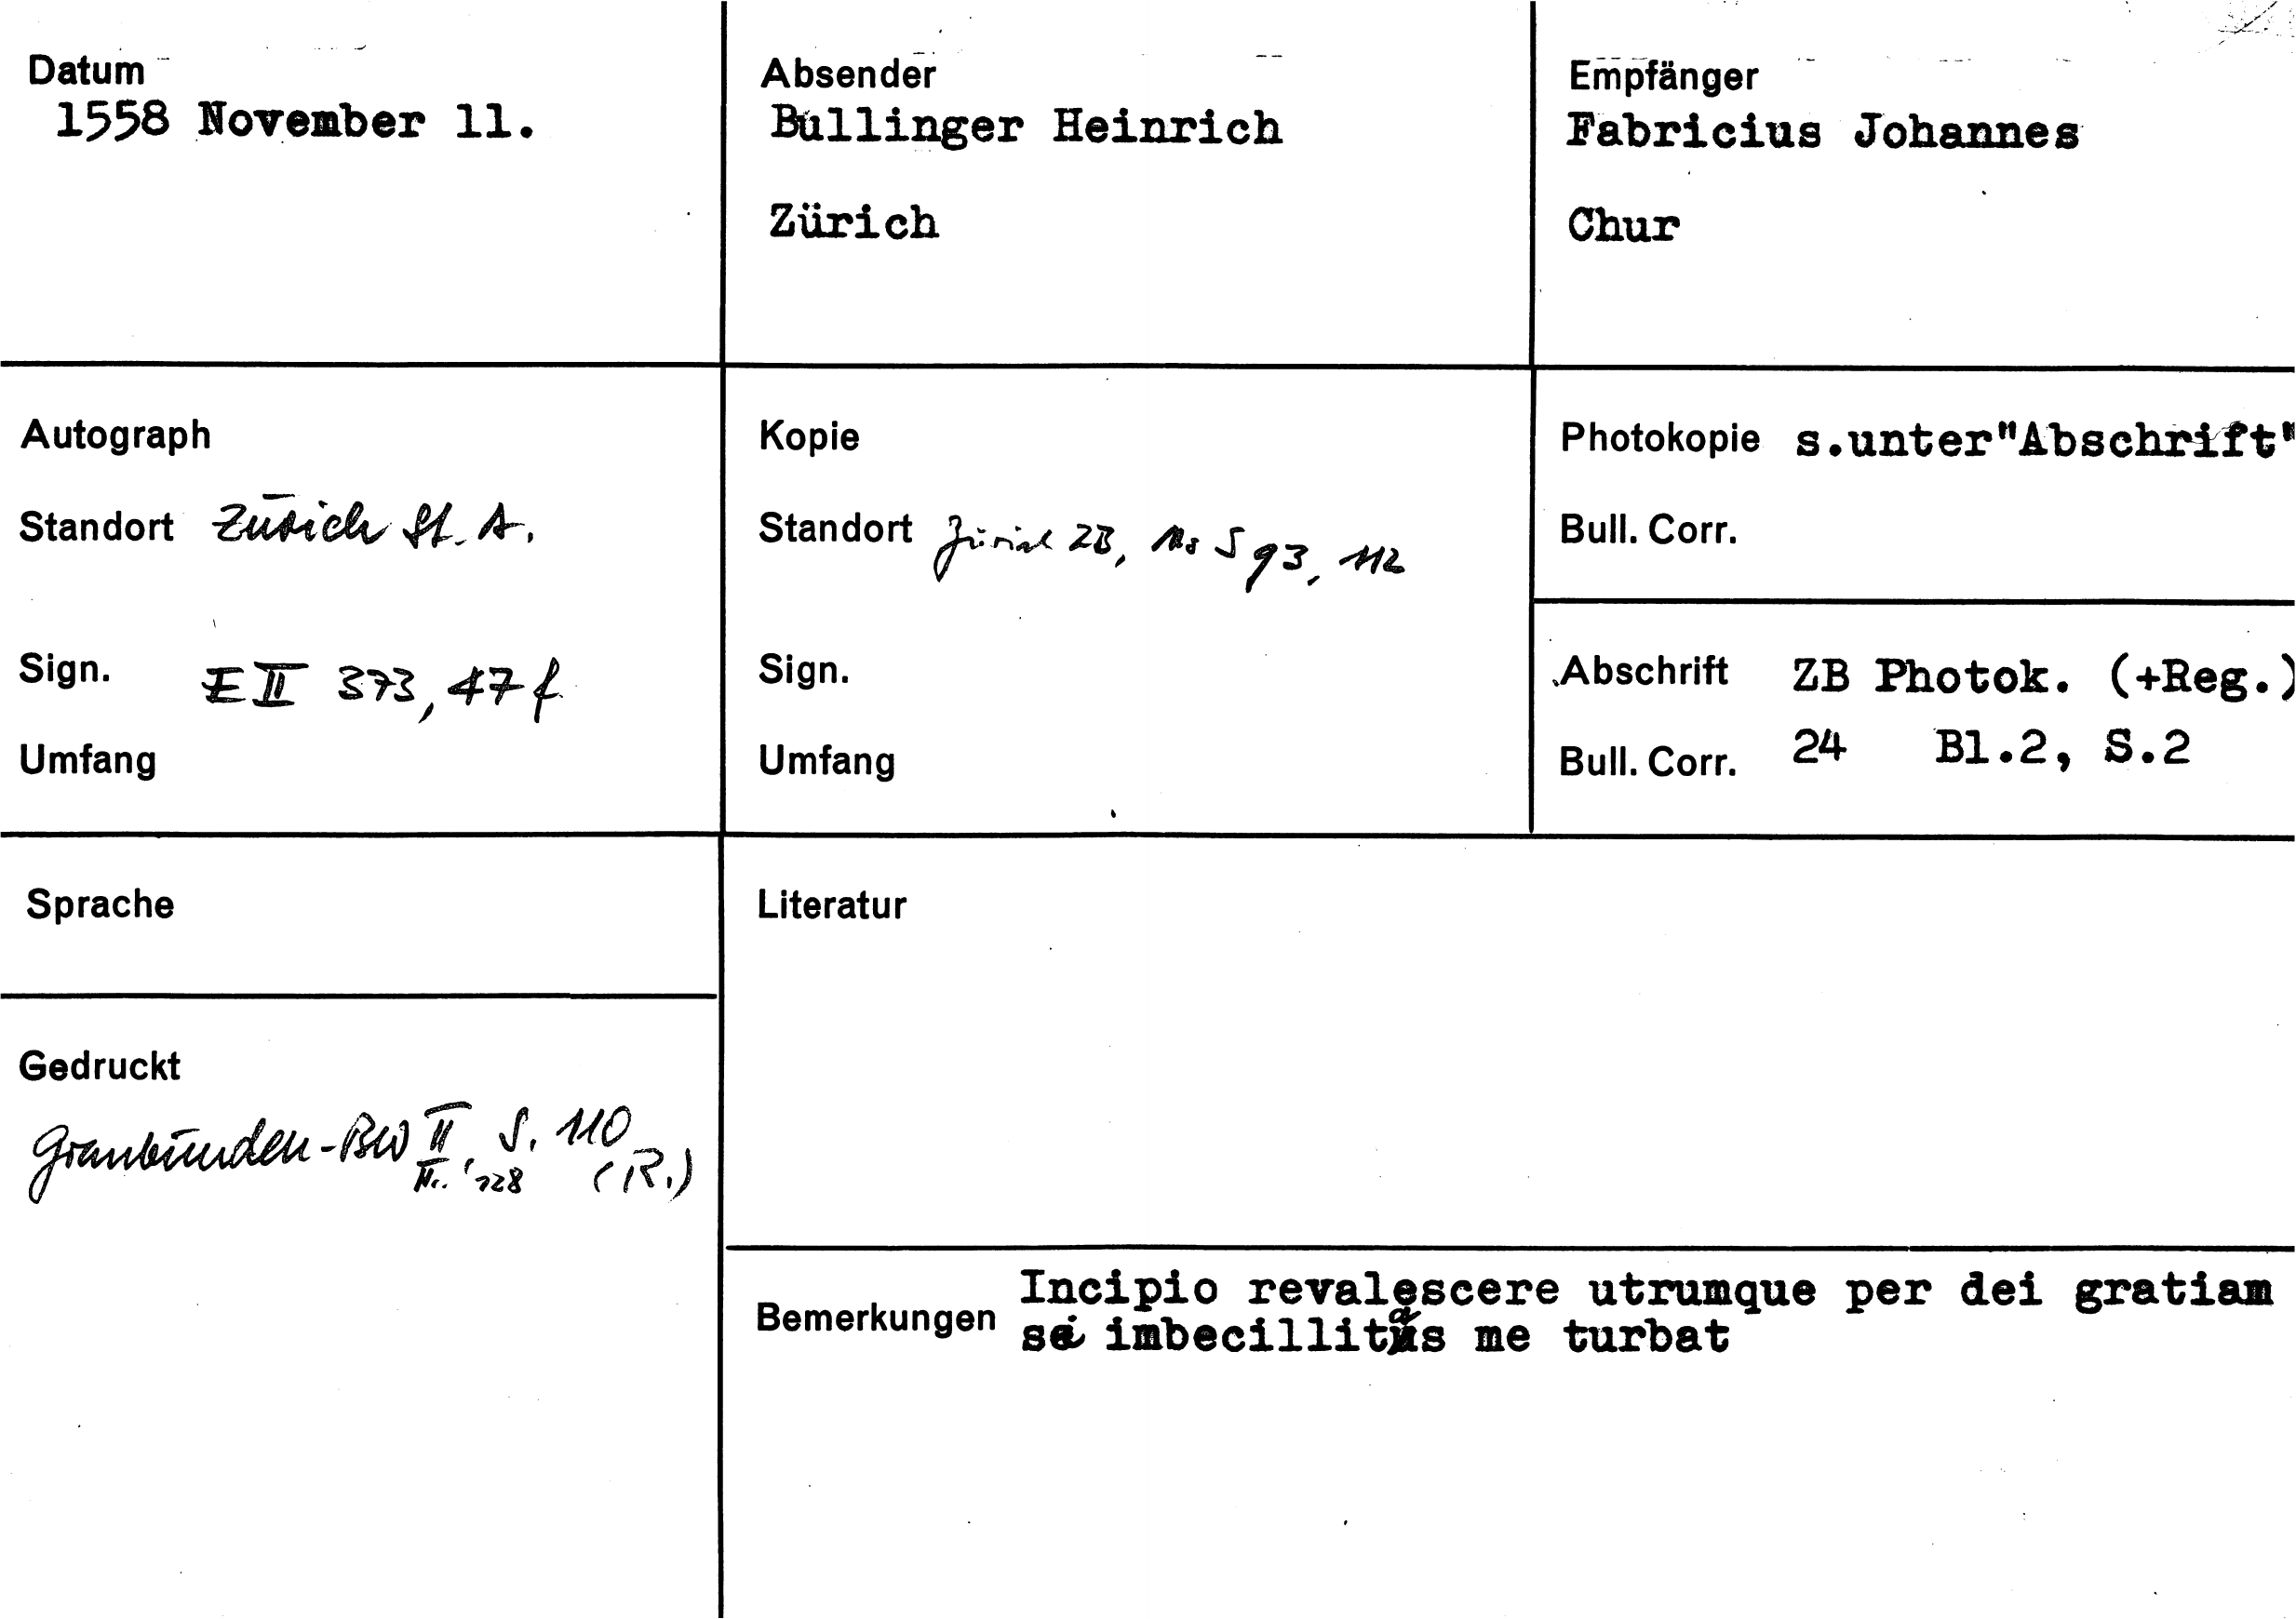 Datum
1558 November 11.
Absender
Bullinger Heinrich
Zürich
Empfänger
Fabricius Johannes
Chur
Autograph
Standort Zürich St. A.
Sign. E II 373, 47 f
Umfang
Kopie
Standort Zürich ZB, Ms S 93, 112
Sign.
Umfang
Photokopie s.unter"Abschrift"
Bull. Corr.
Abschrift ZB Photok. (+Reg.)
Bull. Corr. 24 Bl.2, S.2
Sprache
Gedruckt
Graubünden-BW II, S. 110
Nr. 128 (R.)
Literatur
Bemerkungen Incipio revalescere utrumque per dei gratiam
imbecillitas me turbat